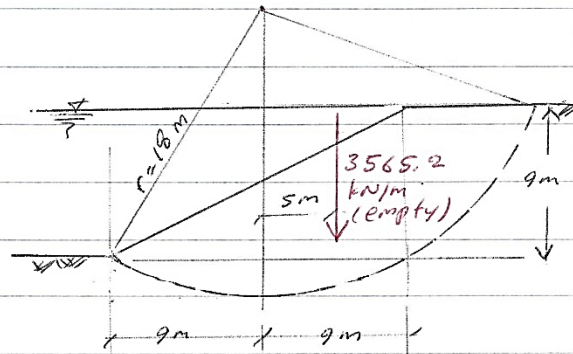 r=18 m
3565.2
kN/m
(empty)
5m
9m
9m
9m